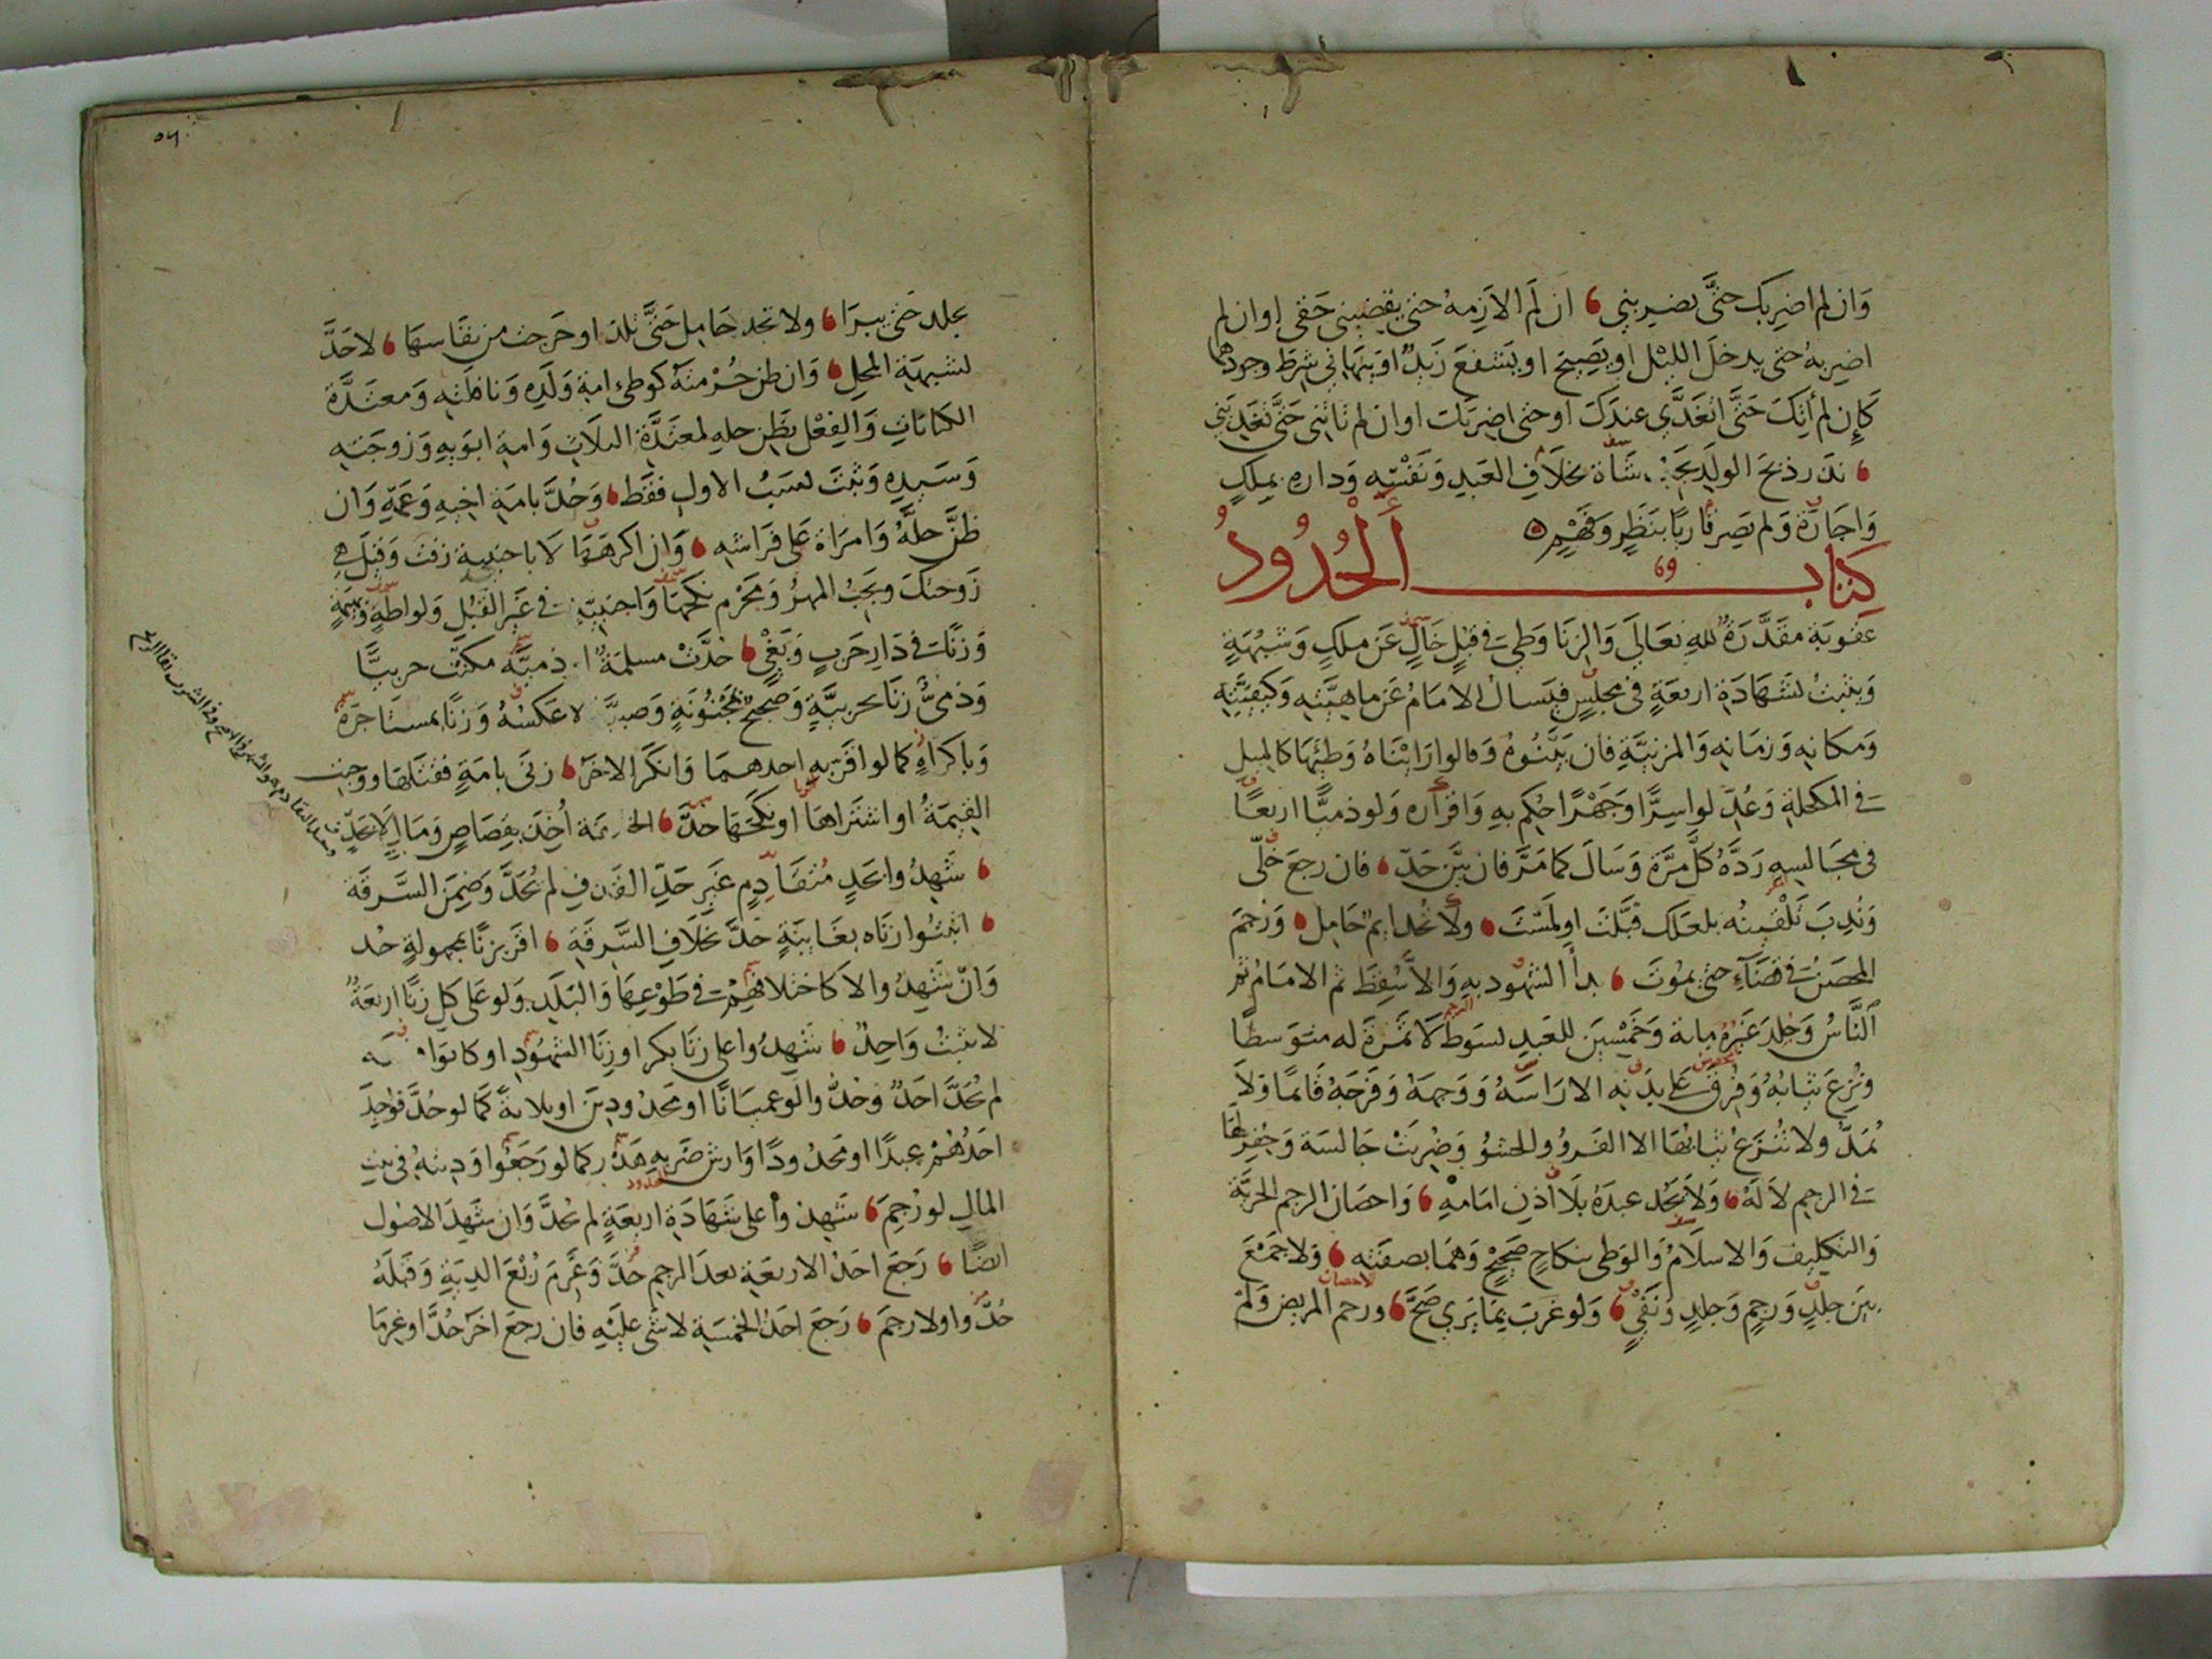 وَان لم اضربك حتَّى تضربني ان لَم الازمهُ حتى يقضيني حَقي اوان لم
اضربهُ حتى يدخلَ الليْل اويَصِيحَ اويَشفعَ زَيدٌ اويَنهَاني شرِطَ وجودهما
كَإن لم أتِكَ حَتَّى اتغَدَّى عندَكَ اوحتى اضربَكَ اوان لم تأتني حَتَّى تغَديَني
نذر ذبحَ الولَدِ شَاة بخلَافِ العَبدِ وَنَفْسِهِ وَداره بملكٍ
وَاجَارَةٍ وَلم يَصِر قاربًا بنَظَرٍ وَفَهْمٍ
كتاب الحُدُودُ
عقوبَة مقدَّرَةٌ للهِ تعَالَى وَالزنَا وَطي في قبُلٍ خَالٍ عَن ملكٍ وَشبُهَةٍ
وَيثبتُ بشَهَادَة اربعَةٍ في مجلسٍ فيَسالُ الامَامُ عَن ماهيَّتهِ وَكيفيَّتهِ
وَمكانهِ وَزمَانهِ وَالمزنيَّةِ فان بيَّنُوهُ وَقالوا رَايْنَاهُ وَطئِهَا كالميل
في المكحلةِ وَعُدِّلوا سِرًّا وَجَهْرًا حُكِم بهِ وَاقرَاره وَلو ذميًّا اربعًا
في مجَالسِهِ رَدَّهُ كلَّ مرَّة وَسَالَ كما مَرَّ فان بيَّن حَدّ فان رجعَ خلّى
وَنُدِبَ تَلْقينُه بلعَلك قبَّلتَ اولَمسْتَ ولَا تُحد ايمٌ حَامِل وَرَجمَ
المحصَن في فضَآءٍ حتى يموتَ بدأ الشهُود بهِ وَالَّا سَقِطَ ثم الامَامُ ثم
النَّاسُ وَجُلِدَ غيَرهُ ماىة وَخَمْسيَن للعَبدِ بسَوط لَا ثمَرَةَ له متوَسطًا
وَنُزِعَ ثيَابُهُ وَفرِقَ عَلى بدَنِه الا رَاسَهُ وَوَجهَهُ وَفَرجَهُ قَائمًا وَلَا
يُمَدّ ولا تُنزعُ ثيَابُهَا الا الفَرو والحشوُ وَضُربَتْ جَالسَة وَحُفِرلهَا
في الرجمِ لَا لَهُ وَلَا يَحُد عبدَهُ بلَا اذنِ امَامهِ وَاحصَان الرجم الحرّيَّة
وَالتكليف وَالاسلَامُ وَالوَطى بنكاحٍ صَحيحٍ وَهمَا بصفَتهِ وَلا جَمْعَ
بَين جلدٍ وَرجمٍ وَجلدٍ وَنَفْيٍ وَلو غربَ بمَا يَرى صَحَّ ورجم المريض وَلم
يجلد حَتى يبرَا ولا تحد حَامِل حَتَّى تلد اوخَرجت من نفَاسهَا لاحَدَّ
لشبهَةِ المحل وَان ظن حُرْمتهُ كوطى امة وَلَده وَنافلتهِ وَمعتَدَّة
الكنايَاتِ وَالفِعْل بظَن حلهِ لمعتَدَّة الثلَاثِ وَامة ابوَيهِ وَزوجَتهِ
وَسَيدِه وَثبتَ لنسَبُ الاولِ فقَط وَحُدَّ بامَة اخيهِ وَعَمّهِ وَان
ظنَّ حلَّهُ وَامرَاة عَلى فرَاشهِ وَان اكرهَهَا لَا باجنبية زفت وَقيلَ هي
زَوجتكَ ويجَبُ المهرُ وَمَحْرَم نكحَهَا وَاجنَبيّةٍ في غَيرِ القُبُلِ وَلوَاطةٍ وَبَهيمَةٍ
وَزنًا في دَارِ حَربٍ وَبَغْي حُدَّتْ مسلمَةٌ ذميَّة مكنتْ حربيًّا
وَذميٌّ زنَا بحربيَّةٍ وَصَحيحٌ بمَجْنُونَةٍ وَصبيَّة لا عَكسُهُ وَزنًا بمستَاجَرَة
وَباكرَاهٍ كما لو اقرّبهِ احدهمَا وَانكَرَ الاخر زنَى بامَةٍ فقتلهَا ووجبت
القيمَةُ او اشتراهَا اونكَحَهَا حُدَّ الخليفة اُخِذَ بقِصَاصٍ وَمَالٍ لَا بحَدّ
شَهِدُوا بحَدٍ مُتقَادِمٍ غيَر حَدِّ القَذفِ لم يُحَدَّ وَضَمِنَ السَّرقَة
اثبتُوا زنَاه بغَايبَةٍ حُدَّ بخلَافِ السَّرقَةِ اقَر بزنًا بمجهولةٍ حُد
وَان شَهِدُوا لَا كاختلافهِمْ في طَوْعِهَا وَالبَلَدِ وَلو عَلى كل زنًا اربَعَةٌ
شَهِدُوا على زنَا بكر اوزنَا الشهُودِ اوكانوا
لم يُحَدَّ احَدٌ وَحُدُّوا لَو عميَانًا اومَحدُودينَ اوثلاثةً كَما لوحُدَّ فوُجِدَ
احَدُهُمْ عبدًا اومَحدُودًا وَارش ضَربهِ هَدَر كمَا لورَجَعُوا وَديتهُ في بيتِ
المَالِ لورُجِمَ شَهِدوا على شَهَادَة اربعَةٍ لم يُحَدَّ وَان شَهِدَ الاصُول
ايضًا رَجَعَ احَدُ الاربعَةِ بعدَ الرجمِ حُدَّ وَغُرِّمَ رُبْعَ الديَةِ وَقبلَهُ
حُدُّوا ولا رجمَ رَجَعَ احَدُ الخمسَةِ لاشَى عليْهِ فان رجعَ اخَر حُدَّا وغرمَا